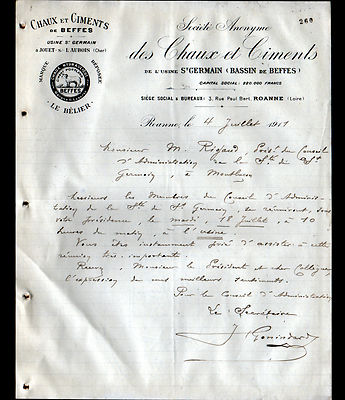 CHAUX ET CIMENTS
DE BEFFES
USINE ST GERMAIN
à JOUET-S-L'AUBOIS (Cher)
MARQUE DÉPOSÉE
BEFFES
LE BÉLIER
260
Société Anonyme
des Chaux et Ciments
DE L'USINE ST GERMAIN (BASSIN DE BEFFES)
CAPITAL SOCIAL: 220.000 FRANCS
SIÈGE SOCIAL & BUREAUX: 3, Rue Paul Bert, ROANNE (Loire)
Roanne, le 4 Juillet 1911
Monsieur M. Présid. du Conseil
d'Administration de la Sté de St
Germain, à Montluçon
Messieurs les Membres du Conseil d'Adminis-
tration de la Sté de St Germain se réuniront, sous
votre Présidence, le mardi, 18 Juillet, à 10
heures du matin, à l'usine.
Vous êtes instamment prié d'assister à cette
réunion très importante.
Recevez, Monsieur le Président et cher Collègue,
l'expression de mes meilleurs sentiments.
Pour le Conseil d'Administration
Le Secrétaire